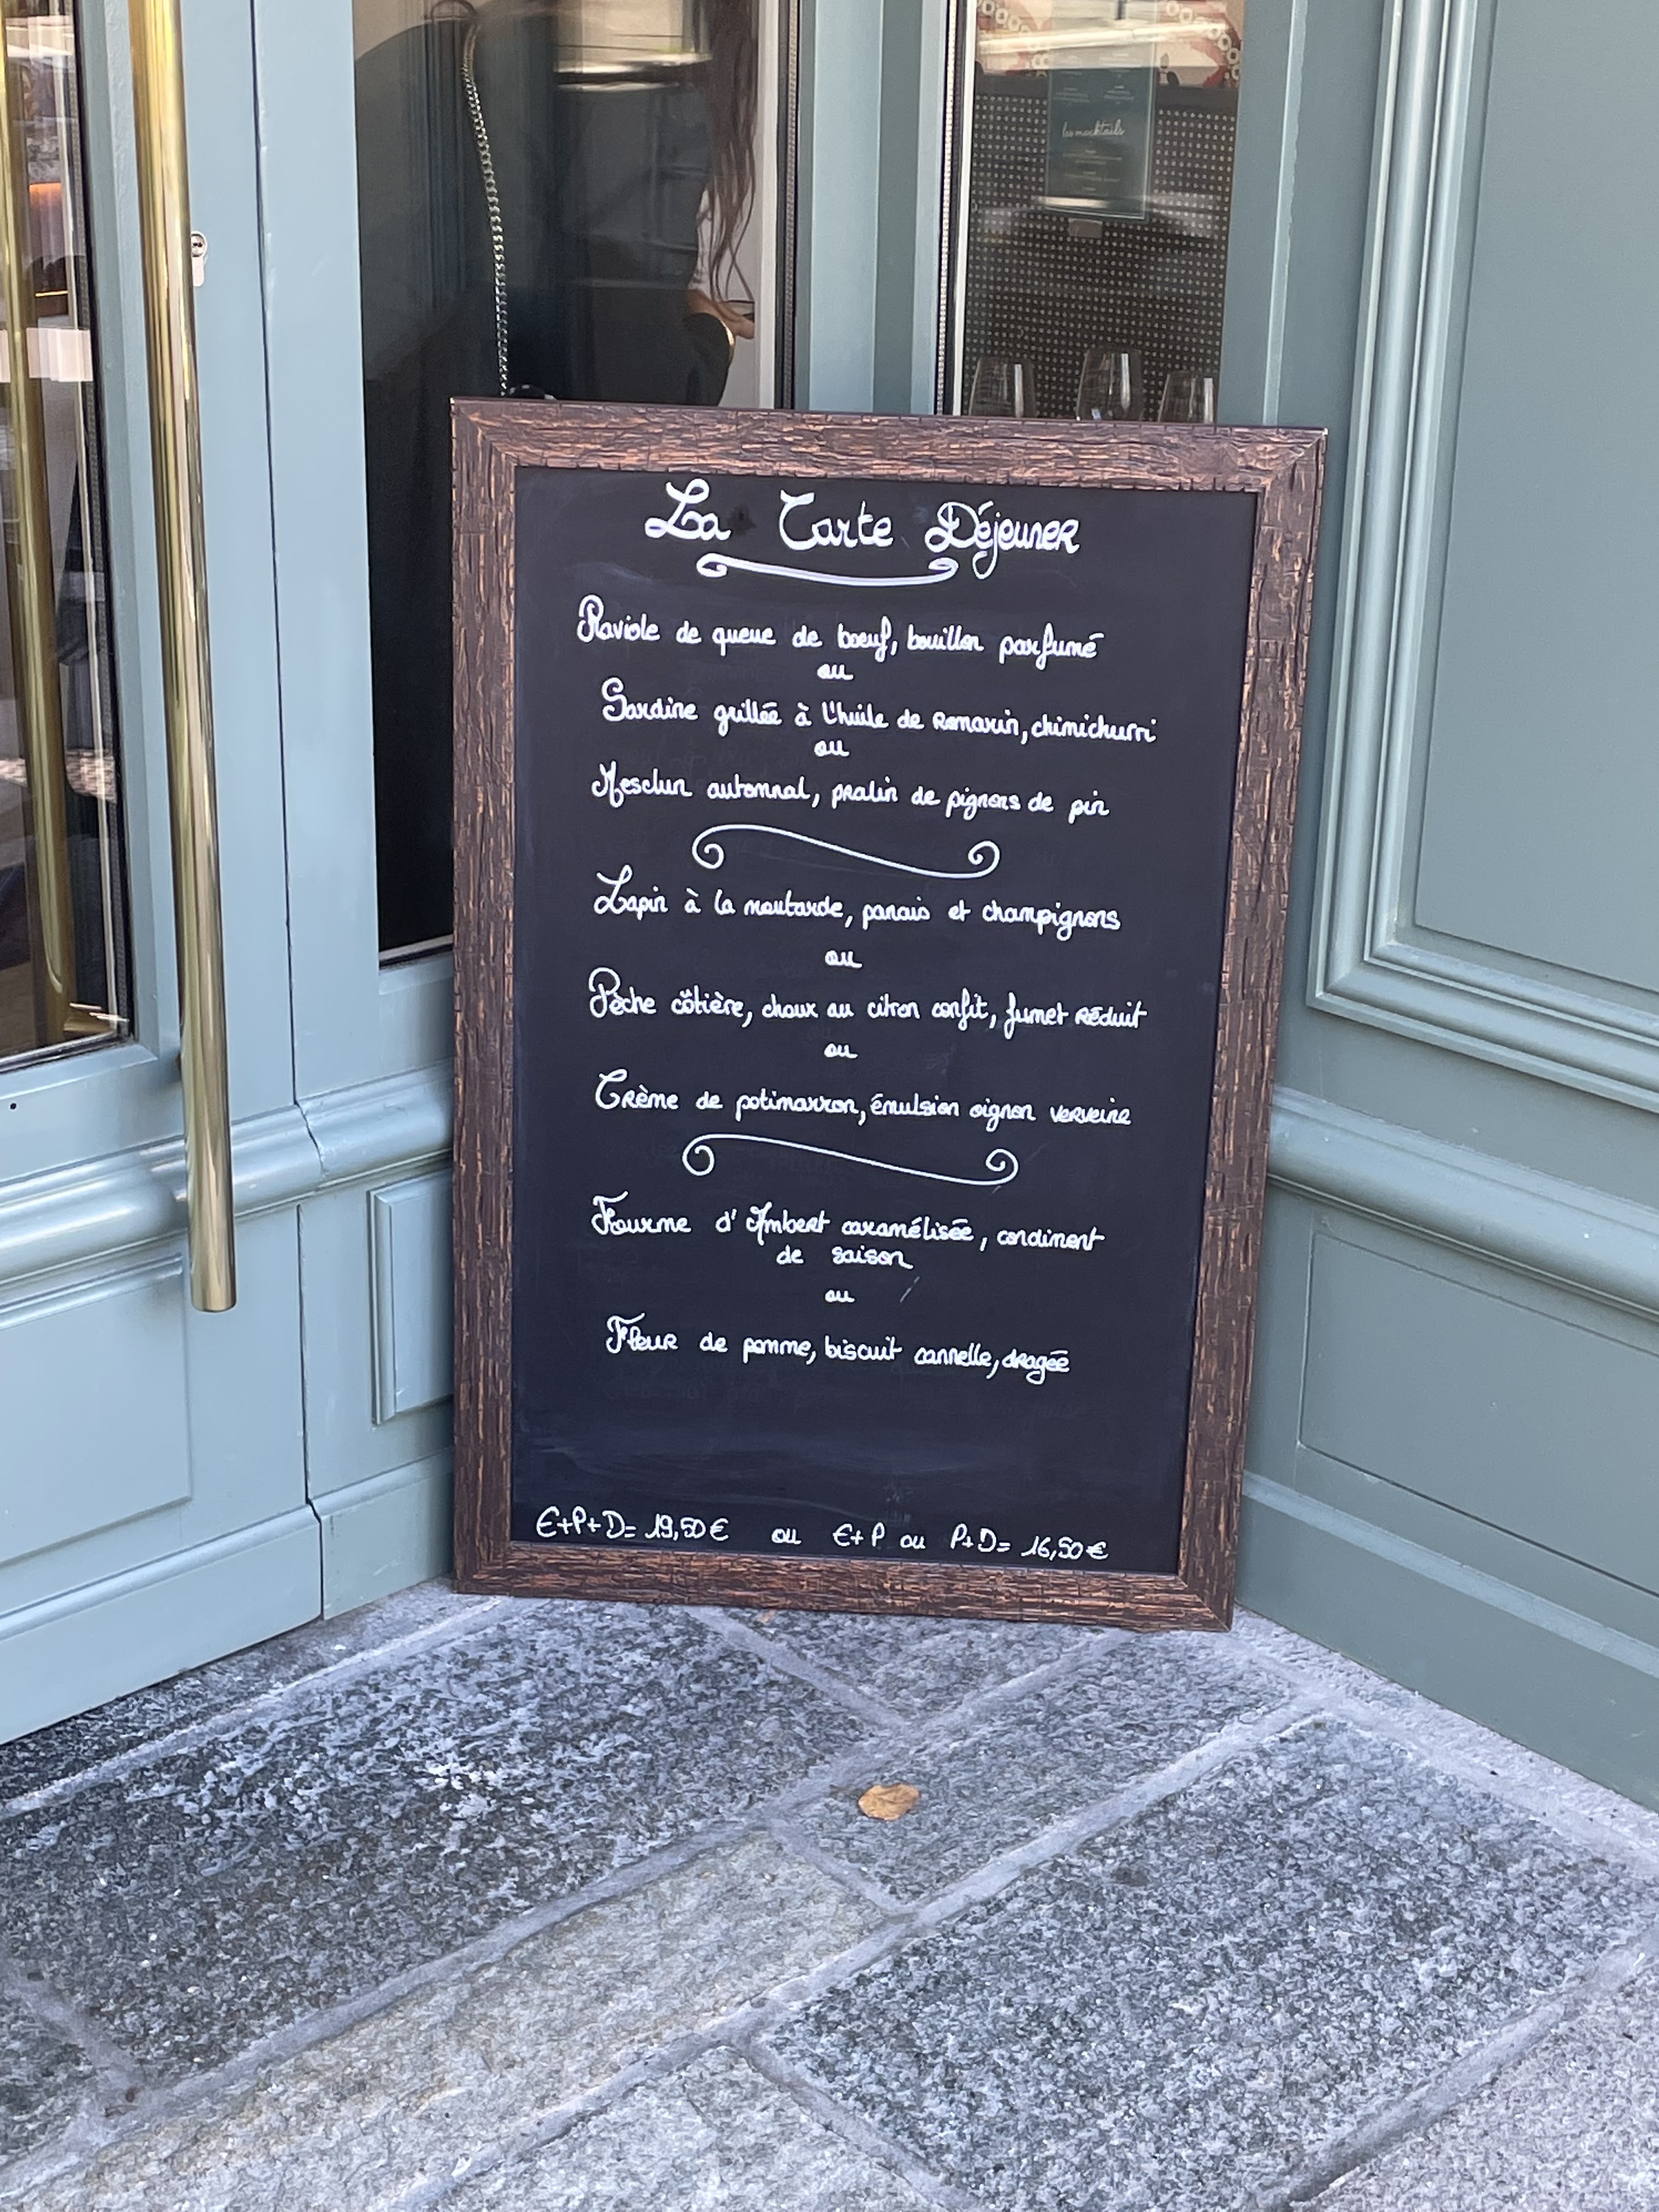 les mocktails
La Carte Déjeuner
Raviole de queue de boeuf, bouillon parfumé
ou
Sardine grillée à l'huile de Romarin, chimichurri
ou
Mesclun automnal, pralin de pignons de pin
Lapin à la moutarde, panais et champignons
ou
Pêche côtière, choux au citron confit, fumet réduit
ou
Crème de potimarron, émulsion oignon verveine
Fourme d'Ambert caramélisée, condiment
de saison
ou
Fleur de pomme, biscuit cannelle, dragée
E+P+D= 19,50€ ou E+P ou P+D= 16,50€